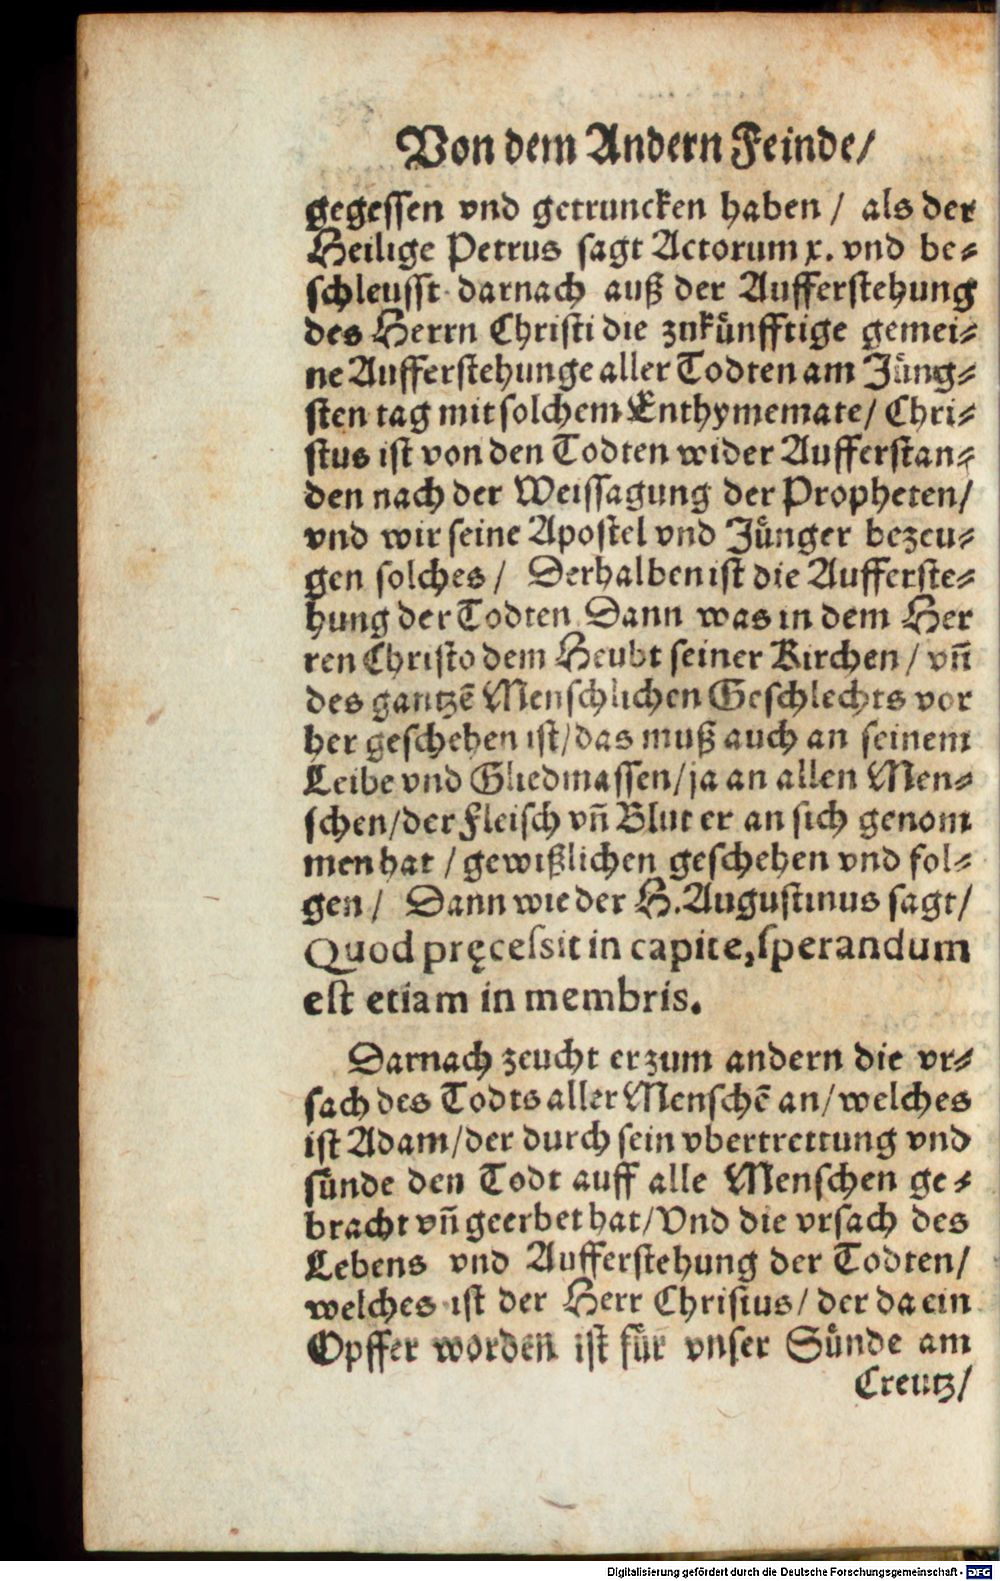 Von dem Andern Feinde/
gegessen vnd getruncken haben / als der
Heilige Petrus sagt Actorum x. vnd be⸗
schleusst darnach auß der Aufferstehung
des Herrn Christi die zukünfftige gemei⸗
ne Aufferstehunge aller Todten am Jüng⸗
sten tag mit solchem Enthymemate/ Chri⸗
stus ist von den Todten wider Aufferstan⸗
den nach der Weissagung der Propheten/
vnd wir seine Apostel vnd Jünger bezeu⸗
gen solches / Derhalben ist die Aufferste⸗
hung der Todten Dann was in dem Her
ren Christo dem Heubt seiner Kirchen / vñ
des gantzẽ Menschlichen Geschlechts vor
her geschehen ist/das muß auch an seinem
Leibe vnd Gliedmassen/ja an allen Men⸗
schen/der Fleisch vñ Blut er an sich genom
men hat / gewißlichen geschehen vnd fol⸗
gen / Dann wie der H. Augustinus sagt/
Quod pręcessit in capite, sperandum
est etiam in membris.
Darnach zeucht er zum andern die vr⸗
sach des Todts aller Menschẽ an/welches
ist Adam/der durch sein vbertrettung vnd
sünde den Todt auff alle Menschen ge⸗
bracht vñ geerbet hat/Vnd die vrsach des
Lebens vnd Aufferstehung der Todten/
welches ist der Herr Christus/ der da ein
Opffer worden ist für vnser Sünde am
Creutz/
Digitalisierung gefördert durch die Deutsche Forschungsgemeinschaft - DFG